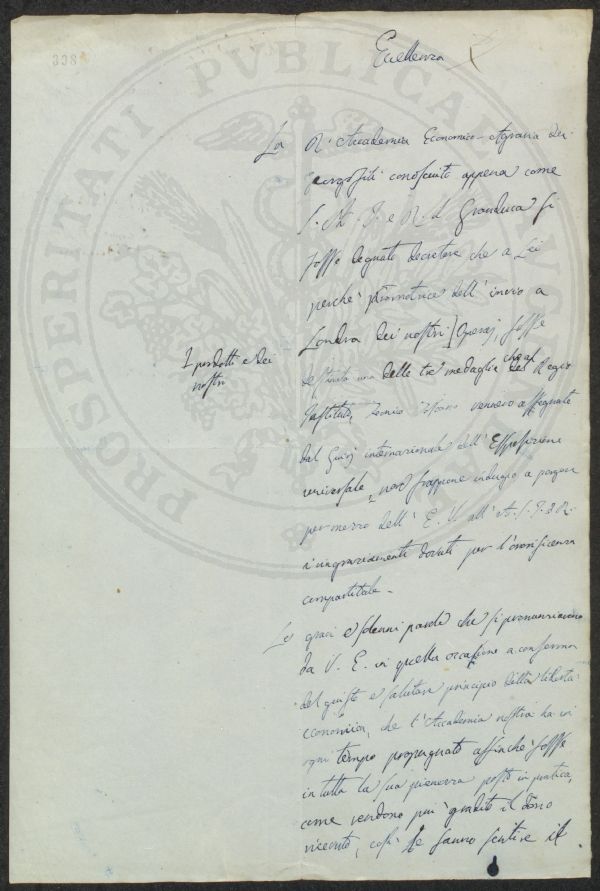 338
Eccellenza
La R. Accademia Economico-Agraria dei
Georgofili conosciuto appena come
S. A. I. e R. il Granduca si
fosse degnato decretare che a Lei
perché promotrice dell'invio a
Londra dei nostri Operaj, fosse
I prodotti e dei
nostri
destinata una delle tre medaglie che al Regio
Istituto Tecnico Toscano vennero assegnate
dal Giurì internazionale dell'Esposizione
universale, non frappone indugio a porgere
per mezzo dell' E. V. all' A. S. I. e R.
i ringraziamenti dovuti per l'onorificenza
compartitale.
Le gravi e solenni parole che si pronunziarono
da V. E. in quella occasione a conferma
del giusto e salutare principio della libertà
economica, che l'Accademia nostra ha in
ogni tempo propugnato affinchè fosse
in tutta la sua pienezza posto in pratica,
come rendono più gradito il dono
ricevuto, così le fanno sentire il
PROSPERITATI PUBLICAE AUGENDAE